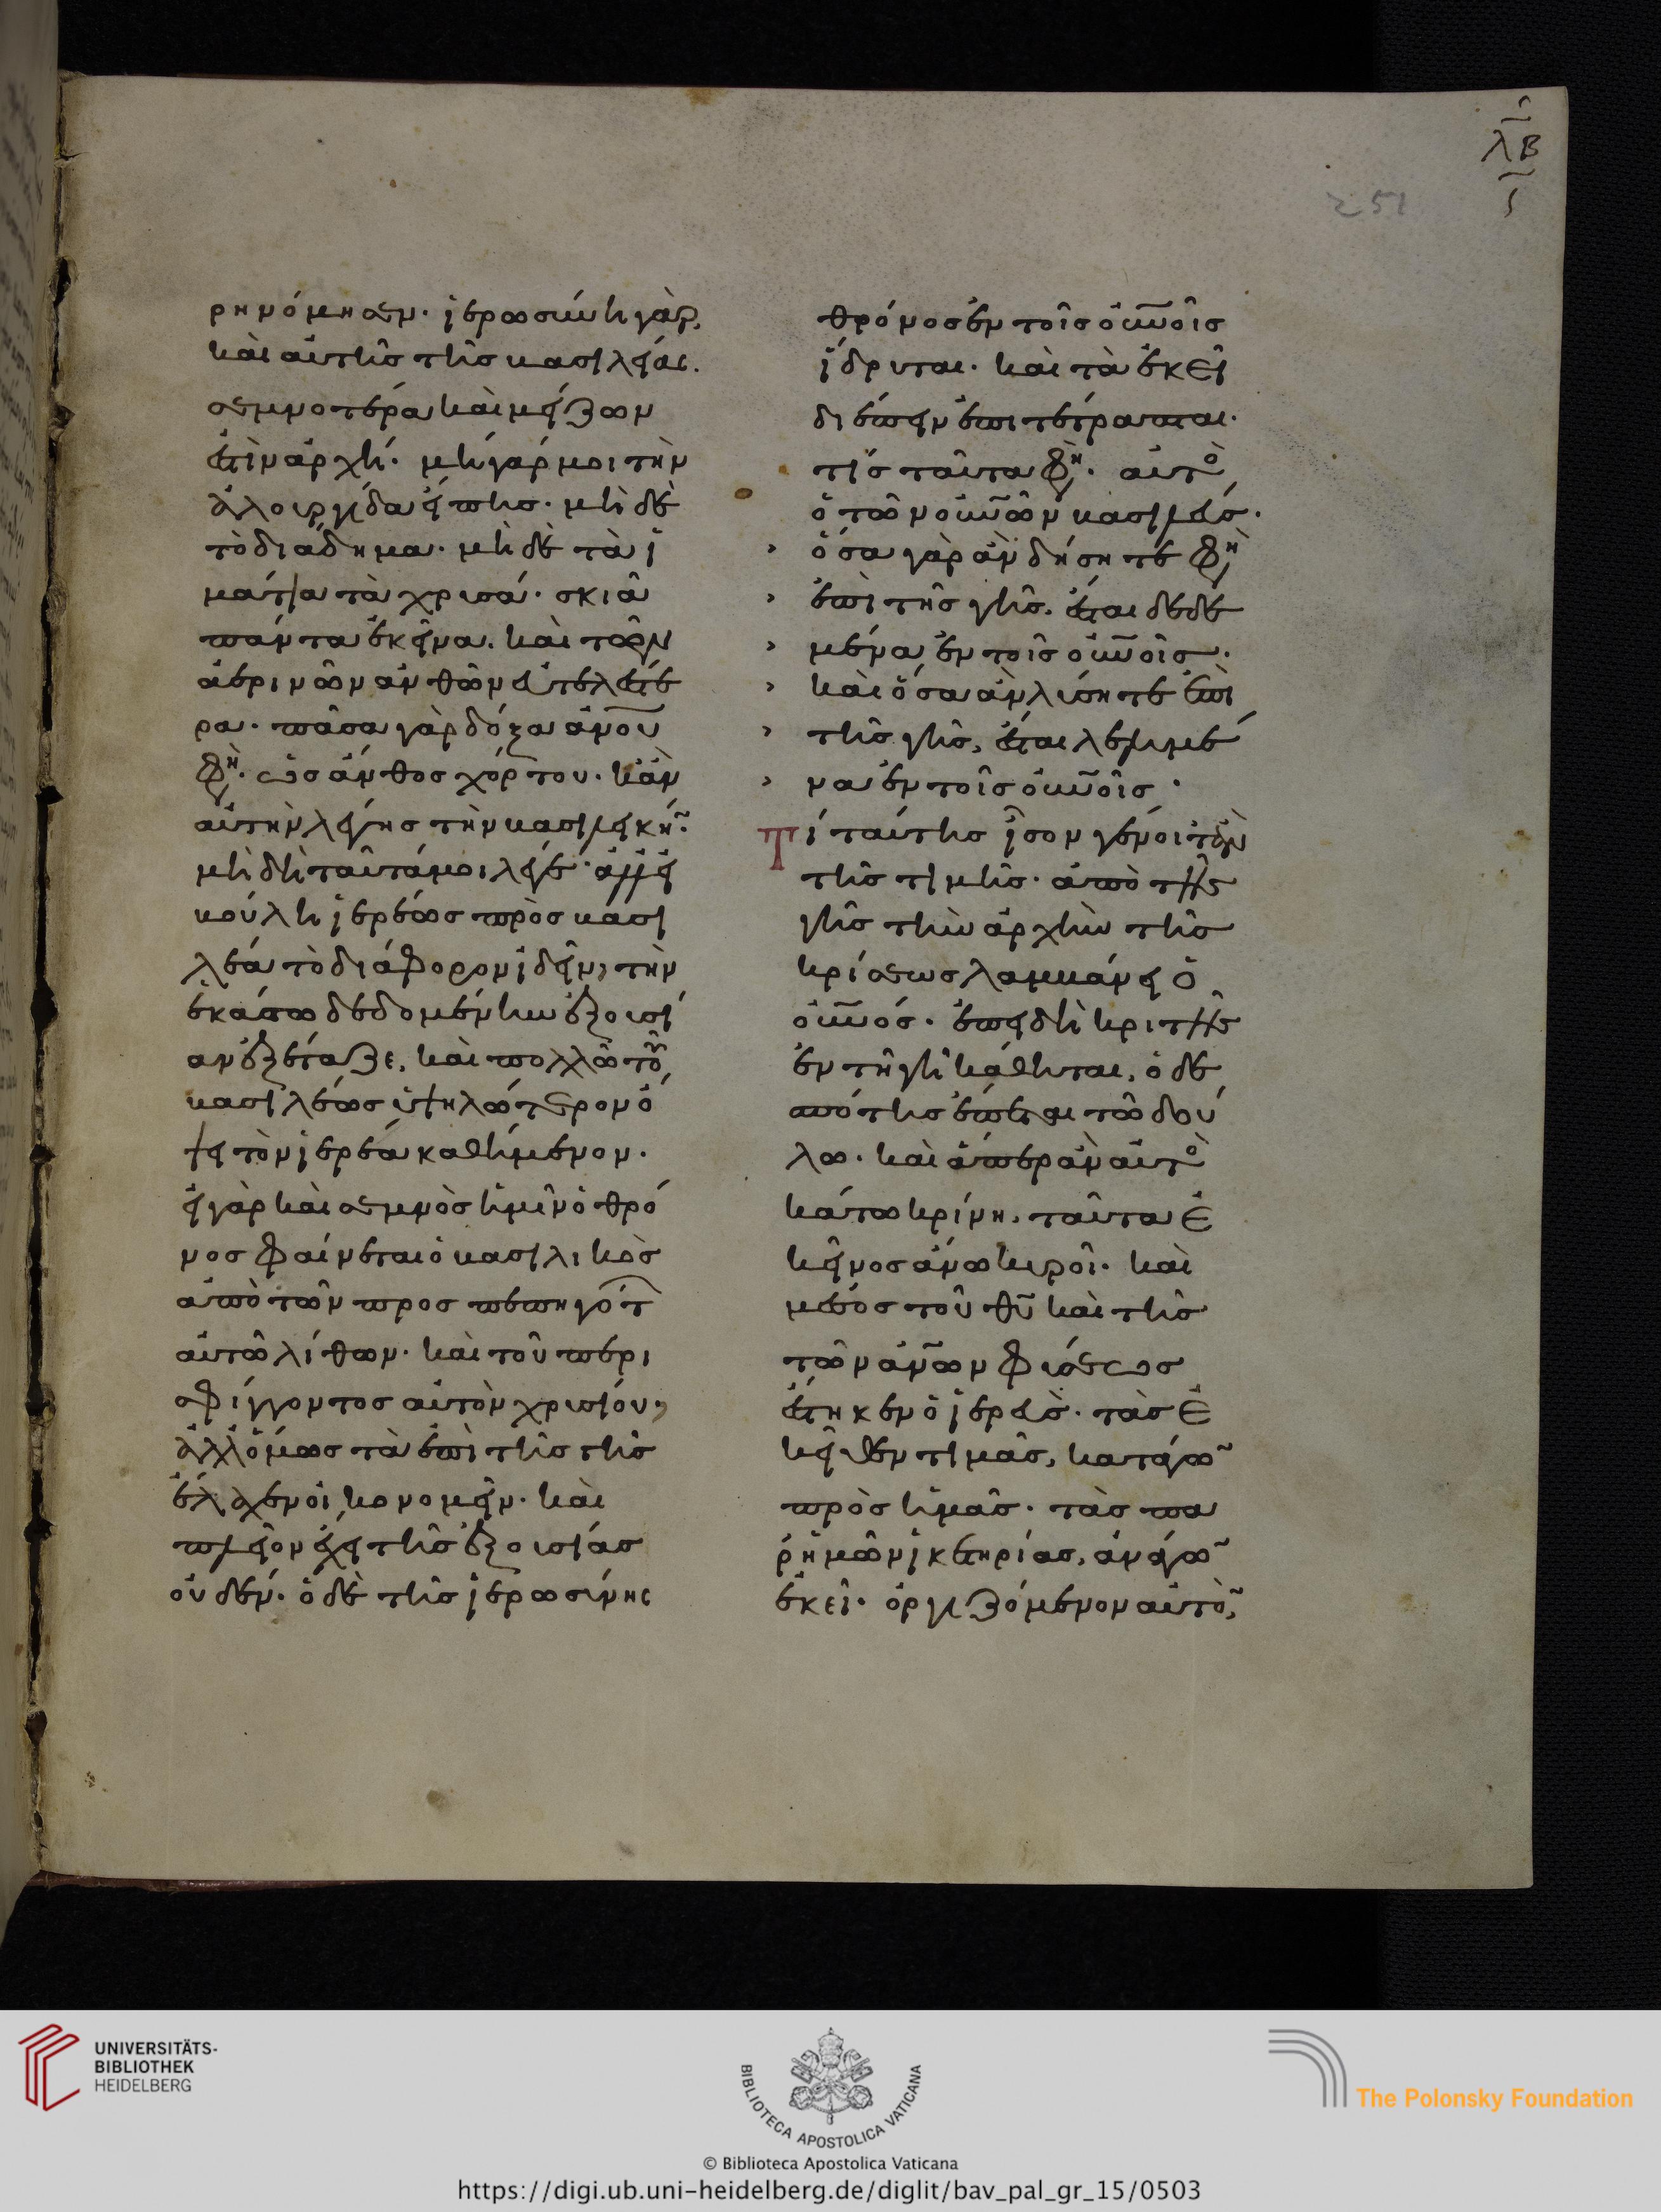 λβ
251
ρημόνησεν· ἱερωσύνη γὰρ
καὶ αὐτῆς τῆς βασιλείας.
σεμνοτέρα καὶ μείζων
ἐστὶν ἀρχή· μὴ γάρ μοι τὴν
ἁλουργίδα εἴπης· μὴ δὲ
τὸ διάδημα· μὴ δὲ τὰ ἱ
μάτια τὰ χρυσά· σκιὰ
πάντα ἐκεῖνα. καὶ τῶν
ἀερινῶν ἀνθῶν εὐτελέστε
ρα· πᾶσα γὰρ δόξα ἀνου
φη· ὡς ἄνθος χόρτου· κἂν
αὐτὴν λέγης τὴν βασιλικήν·
μὴ δὴ ταῦτά μοι λέγε· ἀλλ' εἰ
βούλη ἱερέως πρὸς βασι
λέα τὸ διάφορον ἰδεῖν, τὴν
ἑκάστω δεδομένην ἐξουσί
αν ἐξέταζε, καὶ πολλῶ τοῦ
βασιλέως ὑψηλότερον ὄ
ψει τὸν ἱερέα καθήμενον.
εἰ γὰρ καὶ σεμνὸς ἡμῖν ὁ θρό
νος φαίνεται ὁ βασιλικὸς
ἀπὸ τῶν προσπεπηγότ
αὐτῶ λίθων· καὶ τοῦ περι
σφίγγοντος αὐτὸν χρυσίου,
ἀλλ' ὅμως τὰ ἐπὶ τῆς γῆς
ἔλαχεν οἰκονομεῖν· καὶ
πλεῖον ἔχει τῆς ἐξουσίας
οὐδέν· ὁ δὲ τῆς ἱερωσύνης
θρόνος ἐν τοῖς οὐνοῖς
ἵδρυται· καὶ τὰ ἐκεῖ
διέπειν ἐπιτέτραπται.
τίς ταῦτα φη· αὐτὸ
ὁ τῶν οὐνῶν βασιλεύς.
ὅσα γὰρ ἂν δήσητε φη
ἐπὶ τῆς γῆς. ἔσται δεδε
μένα ἐν τοῖς οὐνοῖς.
καὶ ὅσα ἂν λύσητε ἐπὶ
τῆς γῆς, ἔσται λελυμέ
να ἐν τοῖς οὐνοῖς.
Τί ταύτης ἴσον γένοιτ' ἂν
τῆς τιμῆς· ἀπὸ τῆς
γῆς τὴν ἀρχὴν τῆς
κρίσεως λαμβάνει ὁ
οὐνός· ἐπειδὴ κριτὴς
ἐν τῆ γῆ κάθηται, ὁ δε
σπότης ἕπεται τῶ δού
λω· καὶ ἅπερ ἂν αὐτὸ
κάτω κρίνη, ταῦτα ἐ
κεῖνος ἄνω κυροῖ· καὶ
μέσος τοῦ θυ καὶ τῆς
τῶν ἀνων φύσεως
ἔστηκεν ὁ ἱερεύς· τὰς ἐ
κεῖθεν τιμὰς, κατάγων
πρὸς ἡμᾶς· τὰς πα
ρ' ἡμῶν ἱκετηρίας, ἀνάγων
ἐκεῖ· ὀργιζόμενον αὐτὸν,
UNIVERSITÄTS-
BIBLIOTHEK
HEIDELBERG
BIBLIOTECA APOSTOLICA VATICANA
The Polonsky Foundation
© Biblioteca Apostolica Vaticana
https://digi.ub.uni-heidelberg.de/diglit/bav_pal_gr_15/0503